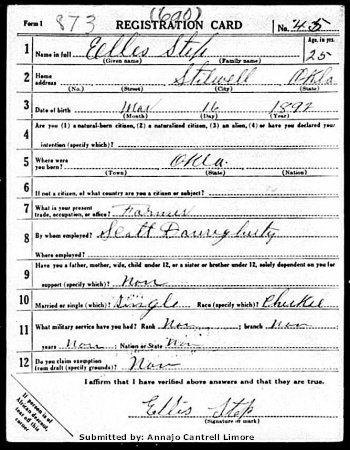 Form 1 873 (600) REGISTRATION CARD No. 45
1 Name in full Eelles Step Age, in yrs. 25
(Given name) (Family name)
2 Home address Stilwell Okla
(No.) (Street) (City) (State)
3 Date of birth Mar 16 1892
(Month) (Day) (Year)
4 Are you (1) a natural-born citizen, (2) a naturalized citizen, (3) an alien, (4) or have you declared your
intention (specify which)?
5 Where were you born? Okla.
(Town) (State) (Nation)
6 If not a citizen, of what country are you a citizen or subject?
7 What is your present trade, occupation, or office? Farmer
8 By whom employed? Scott
Where employed?
9 Have you a father, mother, wife, child under 12, or a sister or brother under 12, solely dependent on you for
support (specify which)? Non
10 Married or single (which)? Single Race (specify which)? Cherkee
11 What military service have you had? Rank Non ; branch Non
years Non ; Nation or State Non
12 Do you claim exemption from draft (specify grounds)? Non
I affirm that I have verified above answers and that they are true.
Ellis Step
(Signature or mark)
If person is of African descent, tear off this corner.
Submitted by: Annajo Cantrell Limore